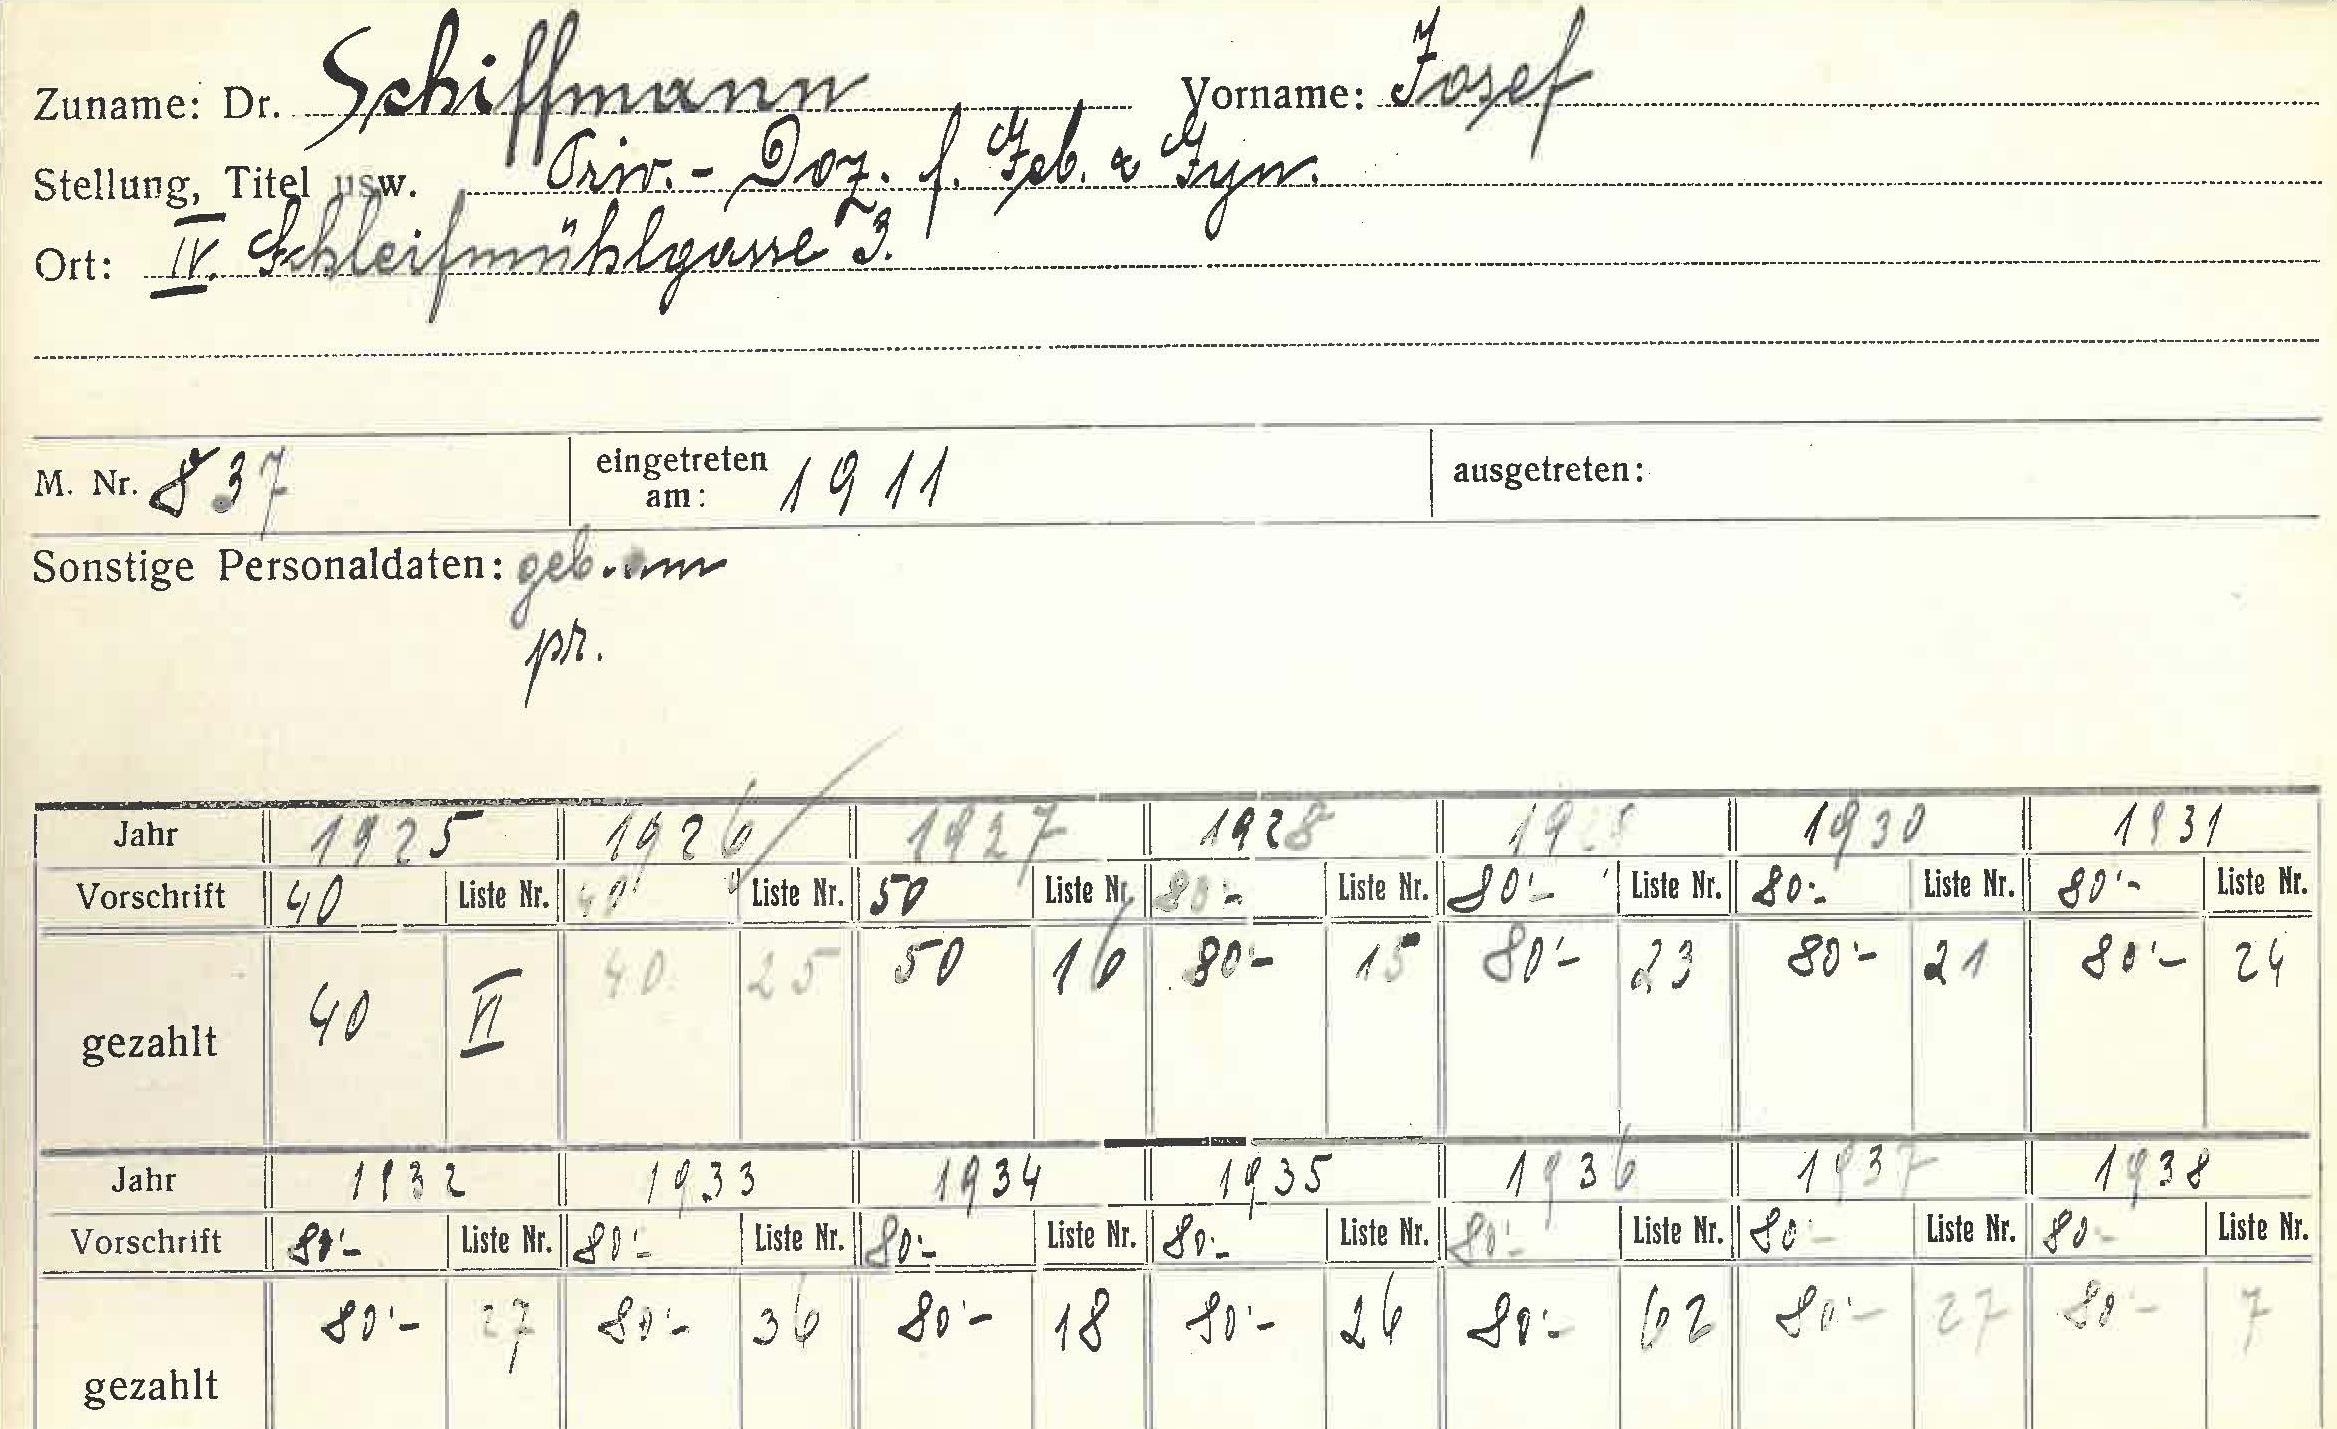 Zuname: Dr. Schiffmann Vorname: Josef
Stellung, Titel usw. Priv.-Doz. f. Geb. & Gyn.
Ort: IV. Schleifmühlgasse 3.
M. Nr. 837 eingetreten am: 1911 ausgetreten:
Sonstige Personaldaten: geb. am
pr.
Jahr 1925 1926 1927 1928 1930 1931
Vorschrift 40 Liste Nr. 40 Liste Nr. 50 Liste Nr. 80·- Liste Nr. 80·- Liste Nr. 80·- Liste Nr. 80·- Liste Nr.
gezahlt 40 VI 40 25 50 16 80·- 15 80·- 23 80·- 21 80·- 24
Jahr 1932 1933 1934 1935 1936 1937 1938
Vorschrift 80·- Liste Nr. 80·- Liste Nr. 80·- Liste Nr. 80·- Liste Nr. 80·- Liste Nr. 80·- Liste Nr. 80·- Liste Nr.
gezahlt 80·- 27 80·- 36 80·- 18 80·- 26 80·- 62 80·- 27 80·- 7